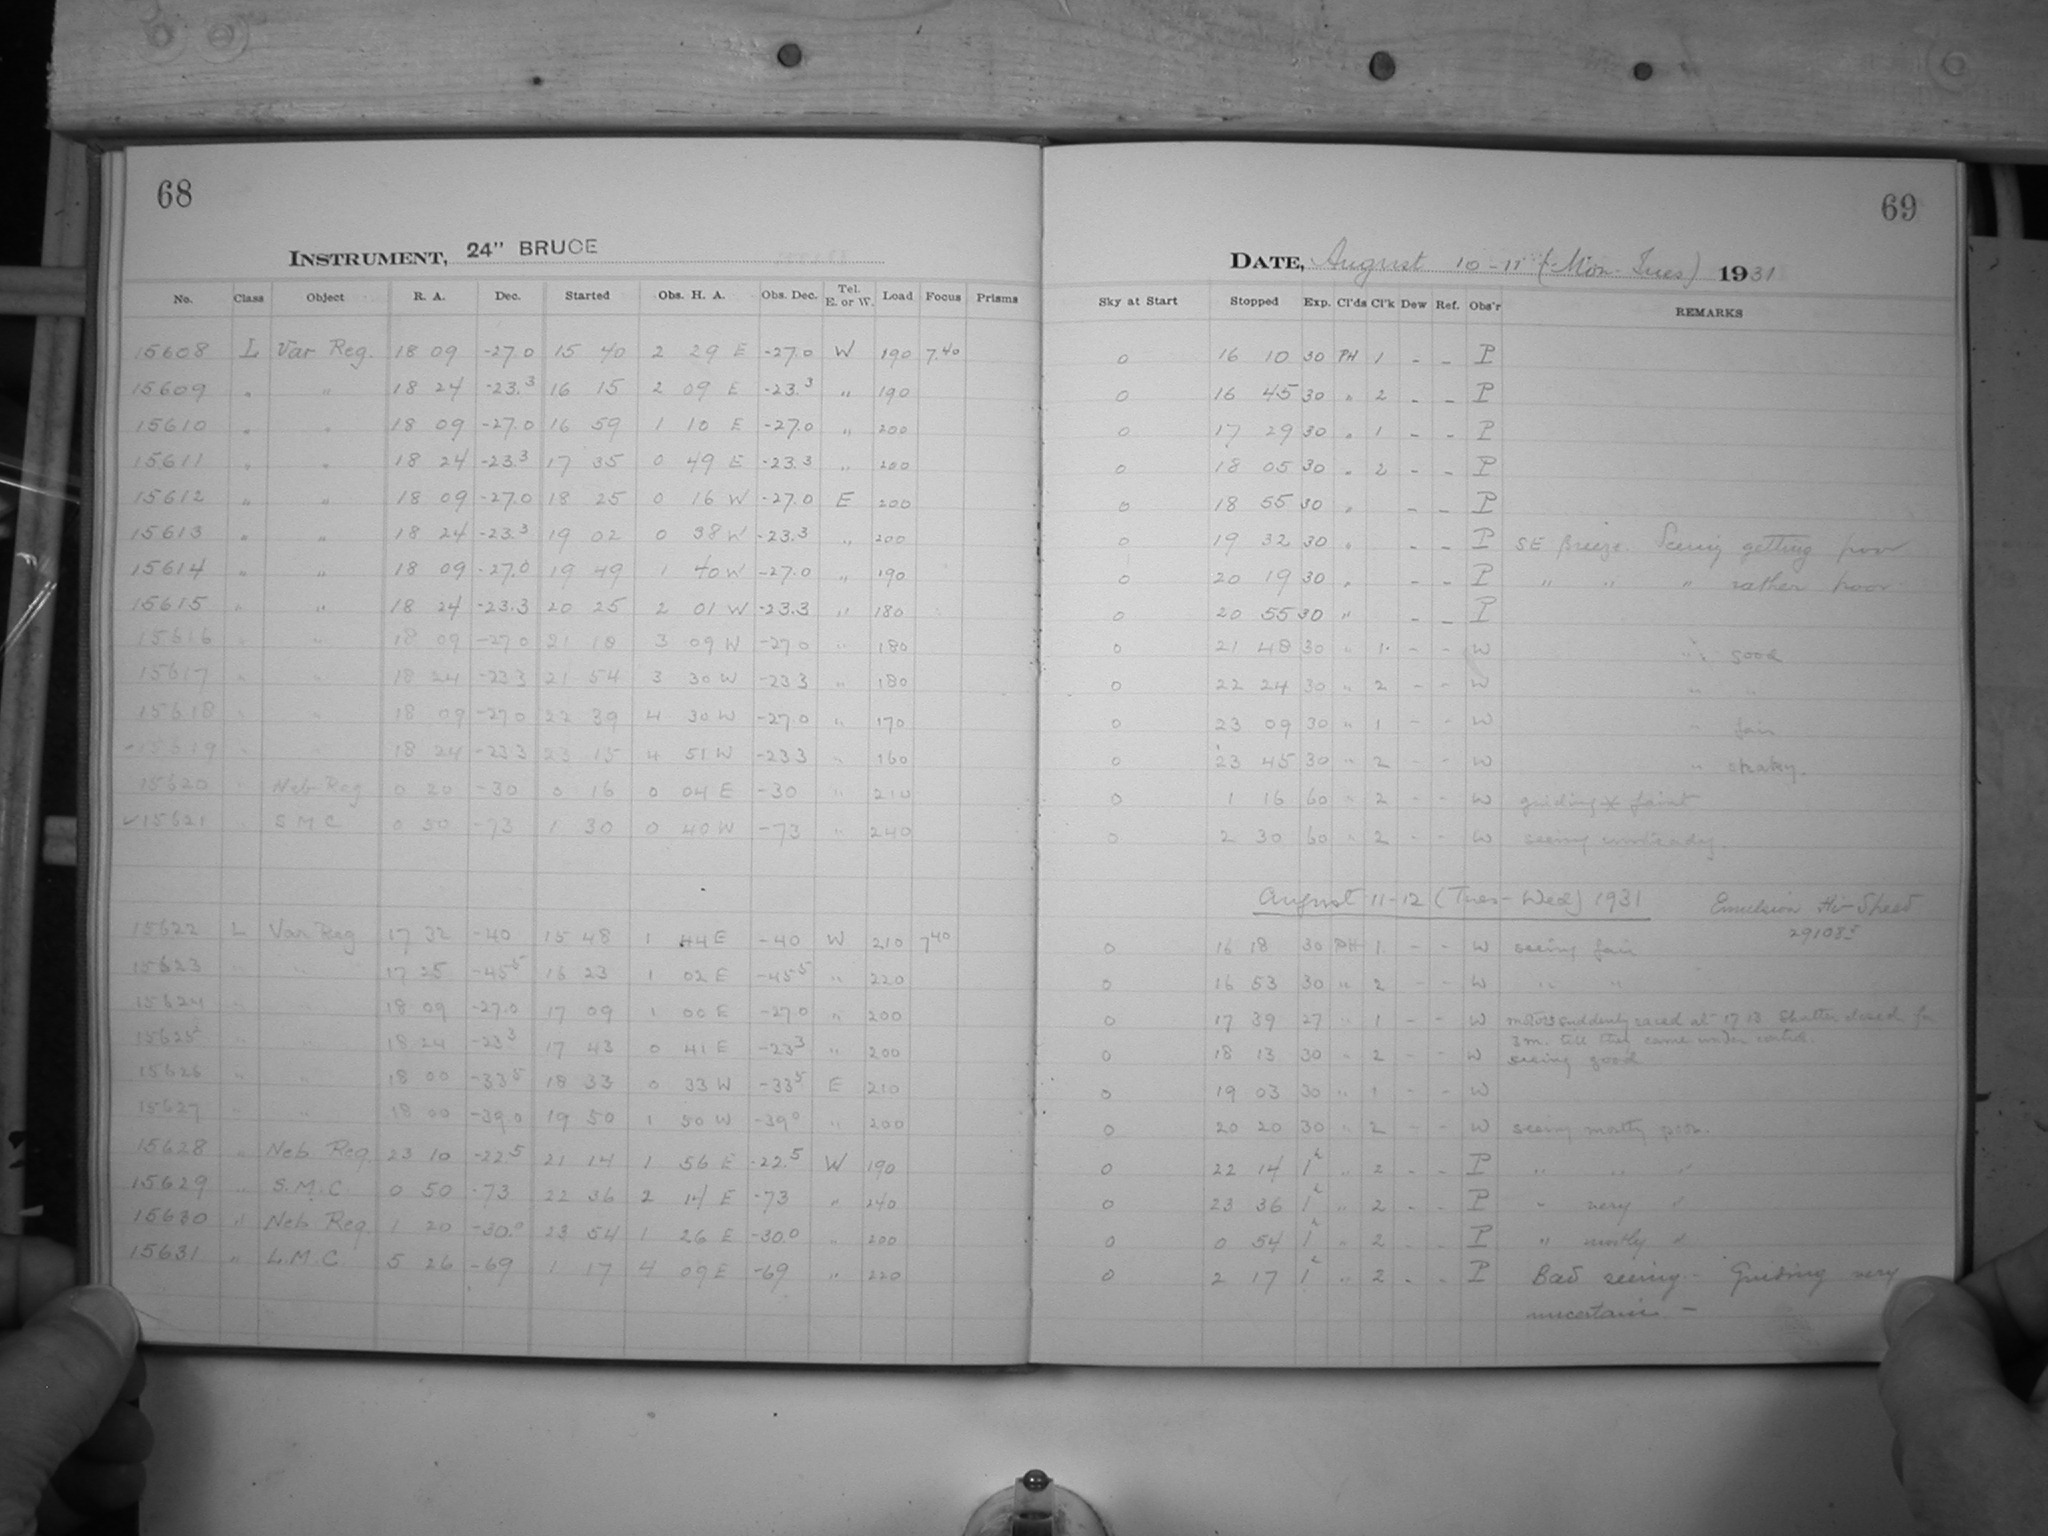 68
69
INSTRUMENT, 24" BRUCE
DATE, August 10-11 (Mon-Tues) 1931
No. Class Object R. A. Dec. Started Obs. H. A. Obs. Dec. Tel. E. or W. Load Focus Prisms Sky at Start Stopped Exp. Cl'ds Cl'k Dew Ref. Obs'r REMARKS
15608 L Var Reg. 18 09 -27.0 15 40 2 29 E -27.0 W 190 7.40 0 16 10 30 PH 1 - - P
15609 " " 18 24 -23.3 16 15 2 09 E -23.3 " 190 0 16 45 30 " 2 - - P
15610 " " 18 09 -27.0 16 59 1 10 E -27.0 " 200 0 17 29 30 " 1 - - P
15611 " " 18 24 -23.3 17 35 0 49 E -23.3 " 200 0 18 05 30 " 2 - - P
15612 " " 18 09 -27.0 18 25 0 16 W -27.0 E 200 0 18 55 30 " - - P
15613 " " 18 24 -23.3 19 02 0 38 W -23.3 " 200 0 19 32 30 " - - P SE Breeze. Seeing getting poor
15614 " " 18 09 -27.0 19 49 1 40 W -27.0 " 190 0 20 19 30 " - - P " " " rather poor
15615 " " 18 24 -23.3 20 25 2 01 W -23.3 " 180 0 20 55 30 " - - P
15616 " " 18 09 -27.0 21 18 3 09 W -27.0 " 180 0 21 48 30 " 1 - - W " good
15617 " " 18 24 -23.3 21 54 3 30 W -23.3 " 180 0 22 24 30 " 2 - - W " "
15618 " " 18 09 -27.0 22 39 4 30 W -27.0 " 170 0 23 09 30 " 1 - - W " fair
15619 " " 18 24 -23.3 23 15 4 51 W -23.3 " 160 0 23 45 30 " 2 - - W " shaky.
15620 " Neb Reg 0 20 -30 0 16 0 04 E -30 " 210 0 1 16 60 " 2 - - W guiding * faint
✓15621 " S M C 0 50 -73 1 30 0 40 W -73 " 240 0 2 30 60 " 2 - - W seeing unsteady.
August 11-12 (Tues-Wed) 1931 Emulsion Hi-Speed
15622 L Var Reg 17 32 -40 15 48 1 44 E -40 W 210 7 40 0 16 18 30 PH 1 - - W seeing fair
15623 " " 17 25 -45 5 16 23 1 02 E -45 5 " 220 0 16 53 30 " 2 - - W " "
15624 " " 18 09 -27.0 17 09 1 00 E -27.0 " 200 0 17 39 27 " 1 - - W motors suddenly raced at 17 13. Shutter closed for
3m. till they came under control.
15625 " " 18 24 -23 3 17 43 0 41 E -23 3 " 200 0 18 13 30 " 2 - - W seeing good
15626 " " 18 00 -33 5 18 33 0 33 W -33 5 E 210 0 19 03 30 " 1 - - W
15627 " " 18 00 -39.0 19 50 1 50 W -39 0 " 200 0 20 20 30 " 2 - - W seeing mostly poor.
15628 " Neb Reg. 23 10 -22.5 21 14 1 56 E -22.5 W 190 0 22 14 1h " 2 - - P " " "
15629 " S.M.C. 0 50 -73 22 36 2 14 E -73 " 240 0 23 36 1h " 2 - - P " very "
15630 " Neb Reg. 1 20 -30.0 23 54 1 26 E -30.0 " 200 0 0 54 1h " 2 - - P " mostly "
15631 " L.M.C 5 26 -69 1 17 4 09 E -69 " 220 0 2 17 1h " 2 - - P Bad seeing - Guiding very
uncertain -